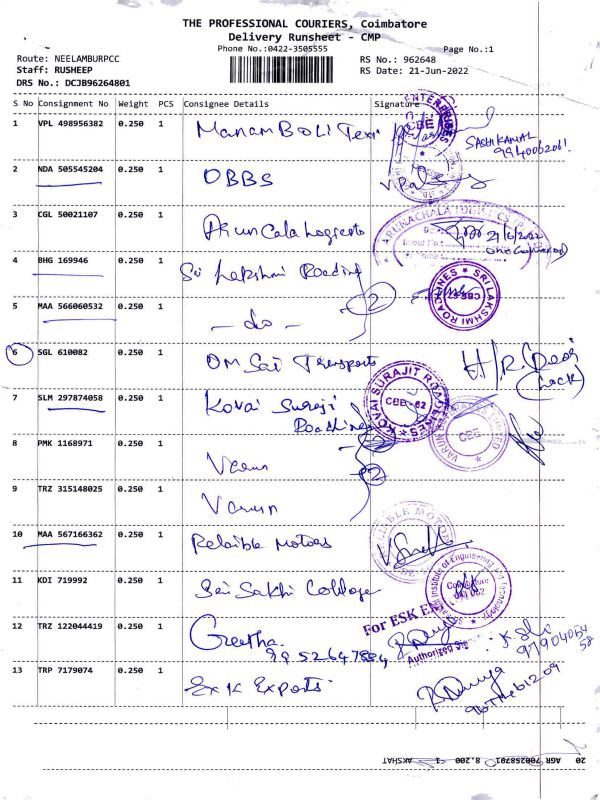 THE PROFESSIONAL COURIERS, Coimbatore
Delivery Runsheet - CMP
Phone No.:0422-3505555
Page No.:1
Route: NEELAMBURPCC
RS No.: 962648
Staff: RUSHEEP
RS Date: 21-Jun-2022
DRS No.: DCJB96264801
S No Consignment No Weight PCS Consignee Details Signature
1 VPL 498956382 0.250 1 ManamBoli Tex
SASHIKAMAL
9940062061
2 NDA 505545204 0.250 1 OBBS
3 CGL 50021107 0.250 1 Arunachala Logistics
ARUNACHALA LOGISTICS
21/6/2022
4 BHG 169946 0.250 1 Sri Lakshmi Roadlines
2
SRI LAKSHMI ROADLINES
CBE
5 MAA 566060532 0.250 1 - do -
6 SGL 610082 0.250 1 Om Sai Transports
H/R. Desi
(Lock)
7 SLM 297874058 0.250 1 Kovai Suraji
Roadlines
KOVAI SURAJIT ROADLINES
CBE - 62
CBE
8 PMK 1168971 0.250 1 Varun
2
9 TRZ 315148025 0.250 1 Varun
10 MAA 567166362 0.250 1 Relaible Motors
11 KDI 719992 0.250 1 Sri Sakthi College
Institute of Engineering and Technology
Coimbatore
641 062
12 TRZ 122044419 0.250 1 Geetha
9952647884
For ESK
Authorized
13 TRP 7179074 0.250 1 Ex K Exports
20 AGR 700258701 8.200 1 AKSHAT